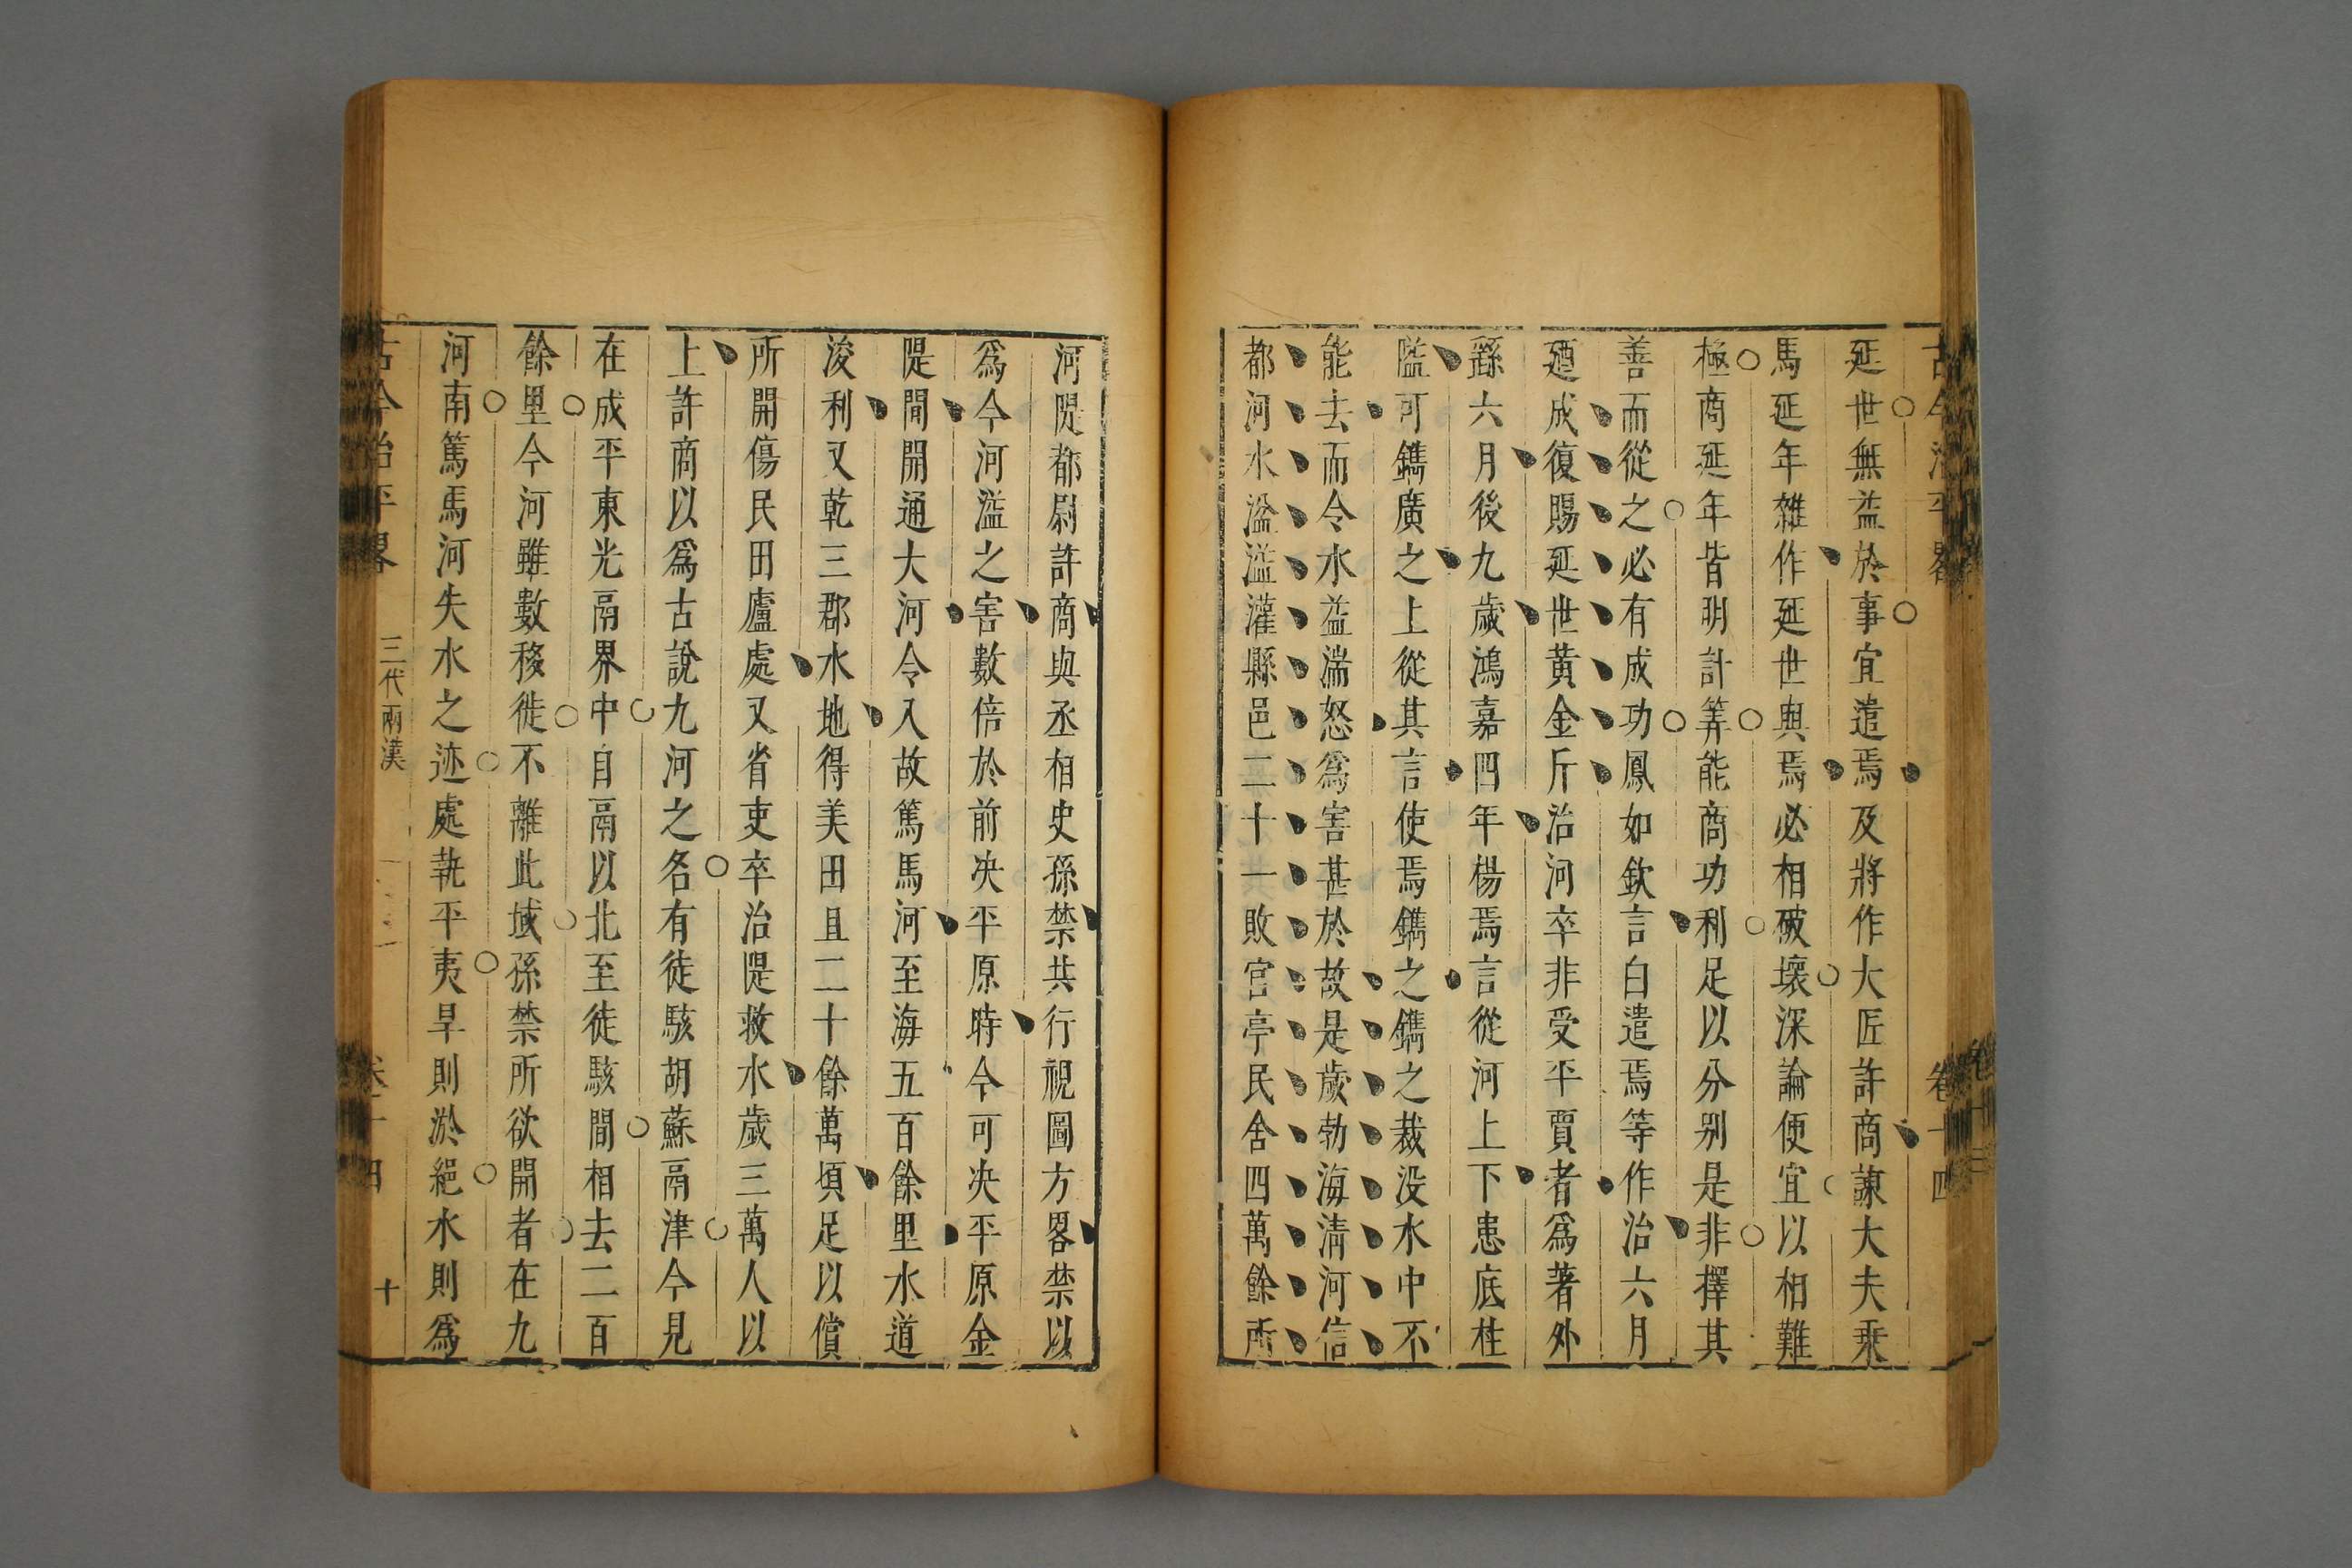 延世無益於事宜遣焉及將作大匠許商諫大夫乘
馬延年雜作延世與焉必相破壞深論便宜以相難
極商延年皆明計筭能商功利足以分别是非擇其
善而從之必有成功鳳如欽言白遣焉等作治六月
廼成復賜延世黄金斤治河卒非受平賈者爲著外
繇六月後九歲鴻嘉四年楊焉言從河上下患底柱
隘可鐫廣之上從其言使焉鐫之鐫之裁没水中不
能去而令水益湍怒爲害甚於故是歲勃海清河信
都河水湓溢灌縣邑三十一敗官亭民舍四萬餘所
河隄都尉許商與丞相史孫禁共行視圖方畧禁以
爲今河溢之害數倍於前决平原時今可决平原金
隄間開通大河令入故篤馬河至海五百餘里水道
浚利又乾三郡水地得美田且二十餘萬頃足以償
所開傷民田廬處又省吏卒治隄救水歲三萬人以
上許商以爲古說九河之名有徒駭胡蘇鬲津今見
在成平東光鬲界中自鬲以北至徒駭間相去二百
餘里今河雖數移徙不離此域孫禁所欲開者在九
河南篤馬河失水之迹處埶平夷旱則淤絕水則爲
古今治平畧
三代兩漢
卷十四
十